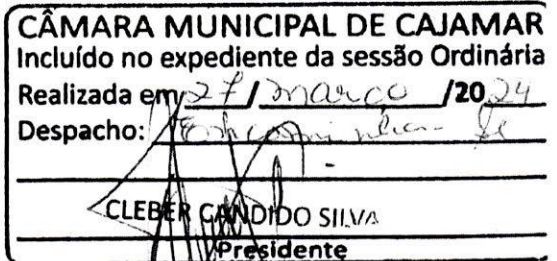 CÂMARA MUNICIPAL DE CAJAMAR
Incluído no expediente da sessão Ordinária
Realizada em 27/março/2024
Despacho: Encaminhar-se
CLEBER CANDIDO SILVA
Presidente